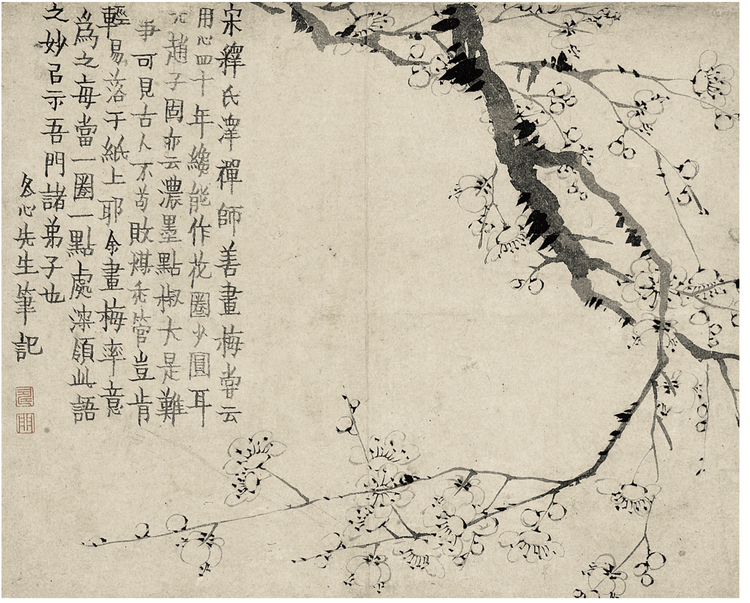 宋釋氏澤禪師善畫梅甞云
用心四十年纔能作花圈少圓耳
元趙子固亦云濃墨點椒大是難
事可見古人不苟敗煤禿管豈肯
輕易落于紙上耶余畫梅率意
爲之每當一圈一點處深領此語
之妙㠯示吾門諸弟子也
冬心先生筆記